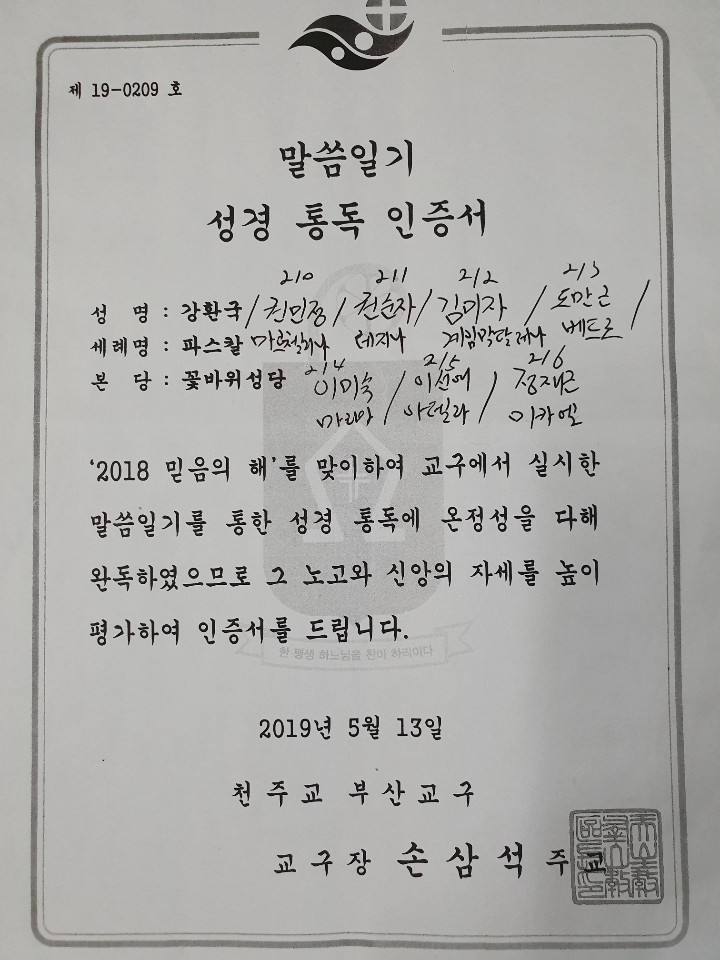 제 19-0209 호
말씀일기
성경 통독 인증서
210 211 212 213
성 명 : 강환국 / 권민정 / 권순자 / 김미자 / 도만근 /
세례명 : 파스칼 마르첼리나 레지나 계임막달레나 베드로
214 215 216
본 당 : 꽃바위성당 이미숙 / 이선애 / 정재근
마리아 / 아델라 / 미카엘
'2018 믿음의 해'를 맞이하여 교구에서 실시한
말씀일기를 통한 성경 통독에 온정성을 다해
완독하였으므로 그 노고와 신앙의 자세를 높이
평가하여 인증서를 드립니다.
한 평생 하느님을 찬미 하리이다
2019년 5월 13일
천주교 부산교구
교구장 손삼석 주교